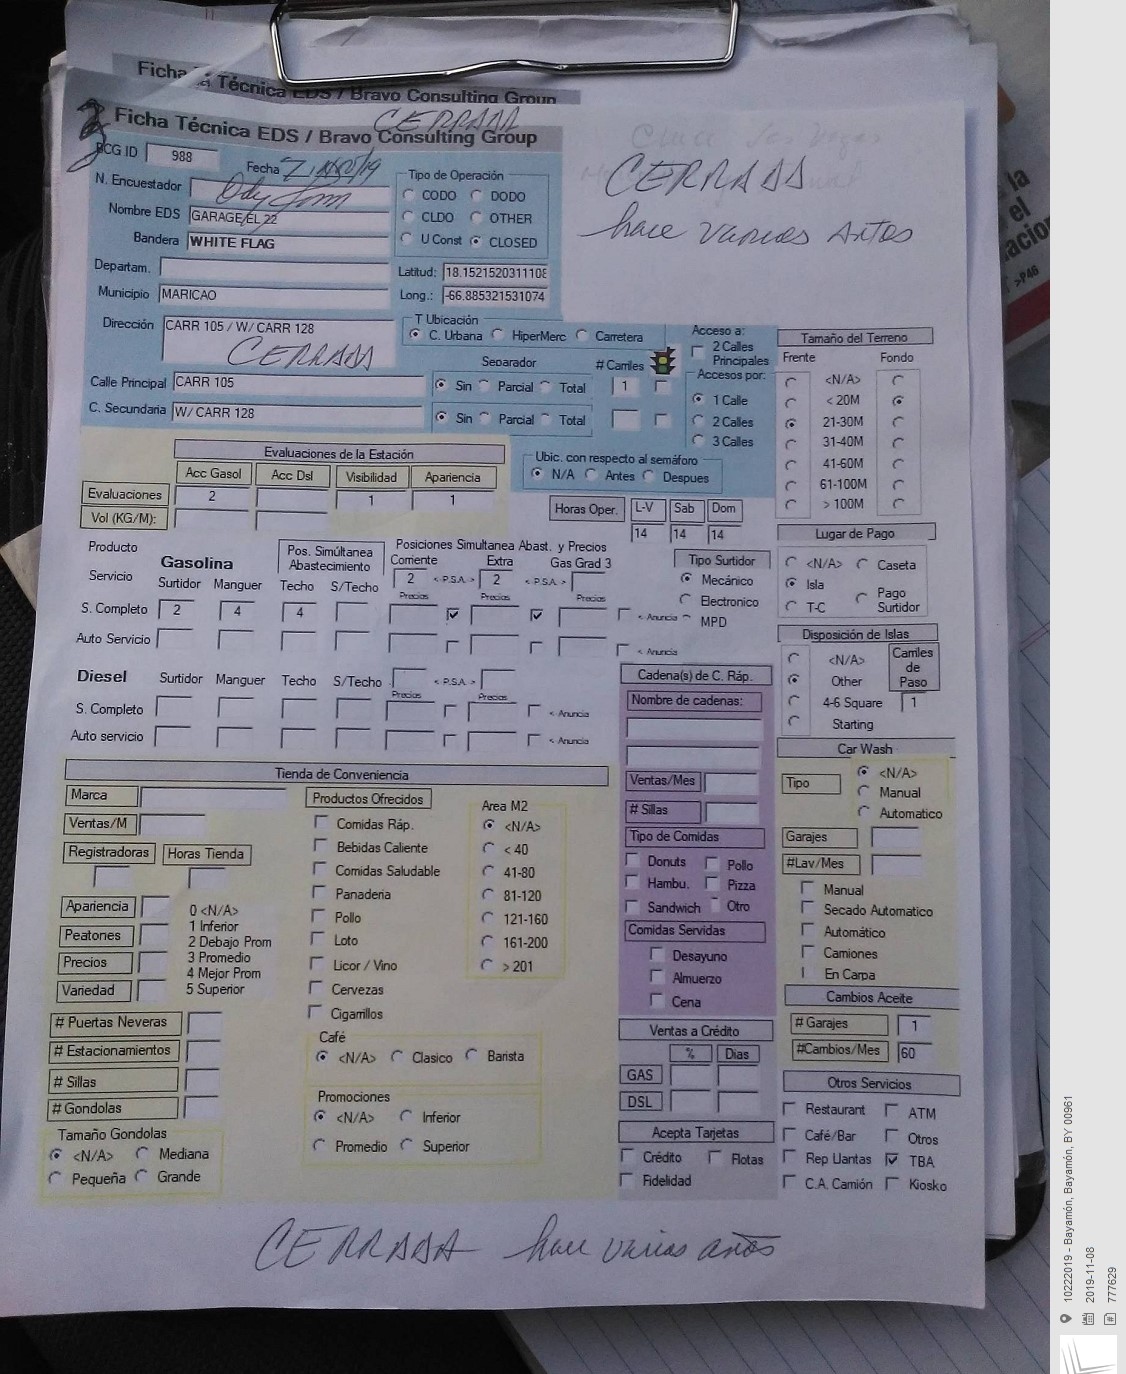 Ficha Técnica EDS / Bravo Consulting Group
CERRADA
Ficha Técnica EDS / Bravo Consulting Group
BCG ID 988 Fecha
N. Encuestador
Nombre EDS GARAGE EL 22
Bandera WHITE FLAG
Departam.
Municipio MARICAO
Tipo de Operación
CODO DODO
CLDO OTHER
U Const CLOSED
Latitud: 18.1521520311108
Long.: -66.885321531074
CERRADA
hace varios Años
Dirección CARR 105 / W/ CARR 128
CERRADA
Calle Principal CARR 105
C. Secundaria W/ CARR 128
T Ubicación
C. Urbana HiperMerc Carretera
Separador # Carriles
Sin Parcial Total 1
Sin Parcial Total
Acceso a:
2 Calles
Principales
Accesos por:
1 Calle
2 Calles
3 Calles
Ubic. con respecto al semáforo
N/A Antes Despues
Tamaño del Terreno
Frente Fondo
<N/A>
< 20M
21-30M
31-40M
41-60M
61-100M
> 100M
Evaluaciones de la Estación
Acc Gasol Acc Dsl Visibilidad Apariencia
Evaluaciones 2 1 1
Vol (KG/M):
Horas Oper. L-V Sab Dom
14 14 14
Lugar de Pago
<N/A> Caseta
Isla Pago
Surtidor
T-C
Producto
Servicio
Gasolina
Pos. Simúltanea
Abastecimiento
Posiciones Simultanea Abast. y Precios
Corriente Extra Gas Grad 3
2 < P.S.A. > 2 < P.S.A. >
Surtidor Manguer Techo S/Techo
Precios Precios Precios
S. Completo 2 4 4 < Anuncia
Auto Servicio < Anuncia
Tipo Surtidor
Mecánico
Electronico
MPD
Disposición de Islas
<N/A>
Other
4-6 Square
Starting
Carriles
de
Paso
1
Diesel Surtidor Manguer Techo S/Techo < P.S.A. >
Precios Precios
S. Completo < Anuncia
Auto servicio < Anuncia
Cadena(s) de C. Ráp.
Nombre de cadenas:
Ventas/Mes
# Sillas
Tipo de Comidas
Donuts Pollo
Hambu. Pizza
Sandwich Otro
Comidas Servidas
Desayuno
Almuerzo
Cena
Car Wash
Tipo
<N/A>
Manual
Automatico
Garajes
#Lav/Mes
Manual
Secado Automatico
Automático
Camiones
En Carpa
Tienda de Conveniencia
Marca
Ventas/M
Registradoras Horas Tienda
Apariencia
Peatones
Precios
Variedad
0 <N/A>
1 Inferior
2 Debajo Prom
3 Promedio
4 Mejor Prom
5 Superior
# Puertas Neveras
# Estacionamientos
# Sillas
# Gondolas
Tamaño Gondolas
<N/A> Mediana
Pequeña Grande
Productos Ofrecidos
Comidas Ráp.
Bebidas Caliente
Comidas Saludable
Panaderia
Pollo
Loto
Licor / Vino
Cervezas
Cigarrillos
Area M2
<N/A>
< 40
41-80
81-120
121-160
161-200
> 201
Café
<N/A> Clasico Barista
Promociones
<N/A> Inferior
Promedio Superior
Ventas a Crédito
% Dias
GAS
DSL
Acepta Tarjetas
Crédito Flotas
Fidelidad
Cambios Aceite
# Garajes 1
#Cambios/Mes 60
Otros Servicios
Restaurant ATM
Café/Bar Otros
Rep Llantas TBA
C.A. Camión Kiosko
CERRADA hace varios años
la
el
acion
>P46
10222019 - Bayamón, Bayamón, BY 00961
2019-11-08
777629